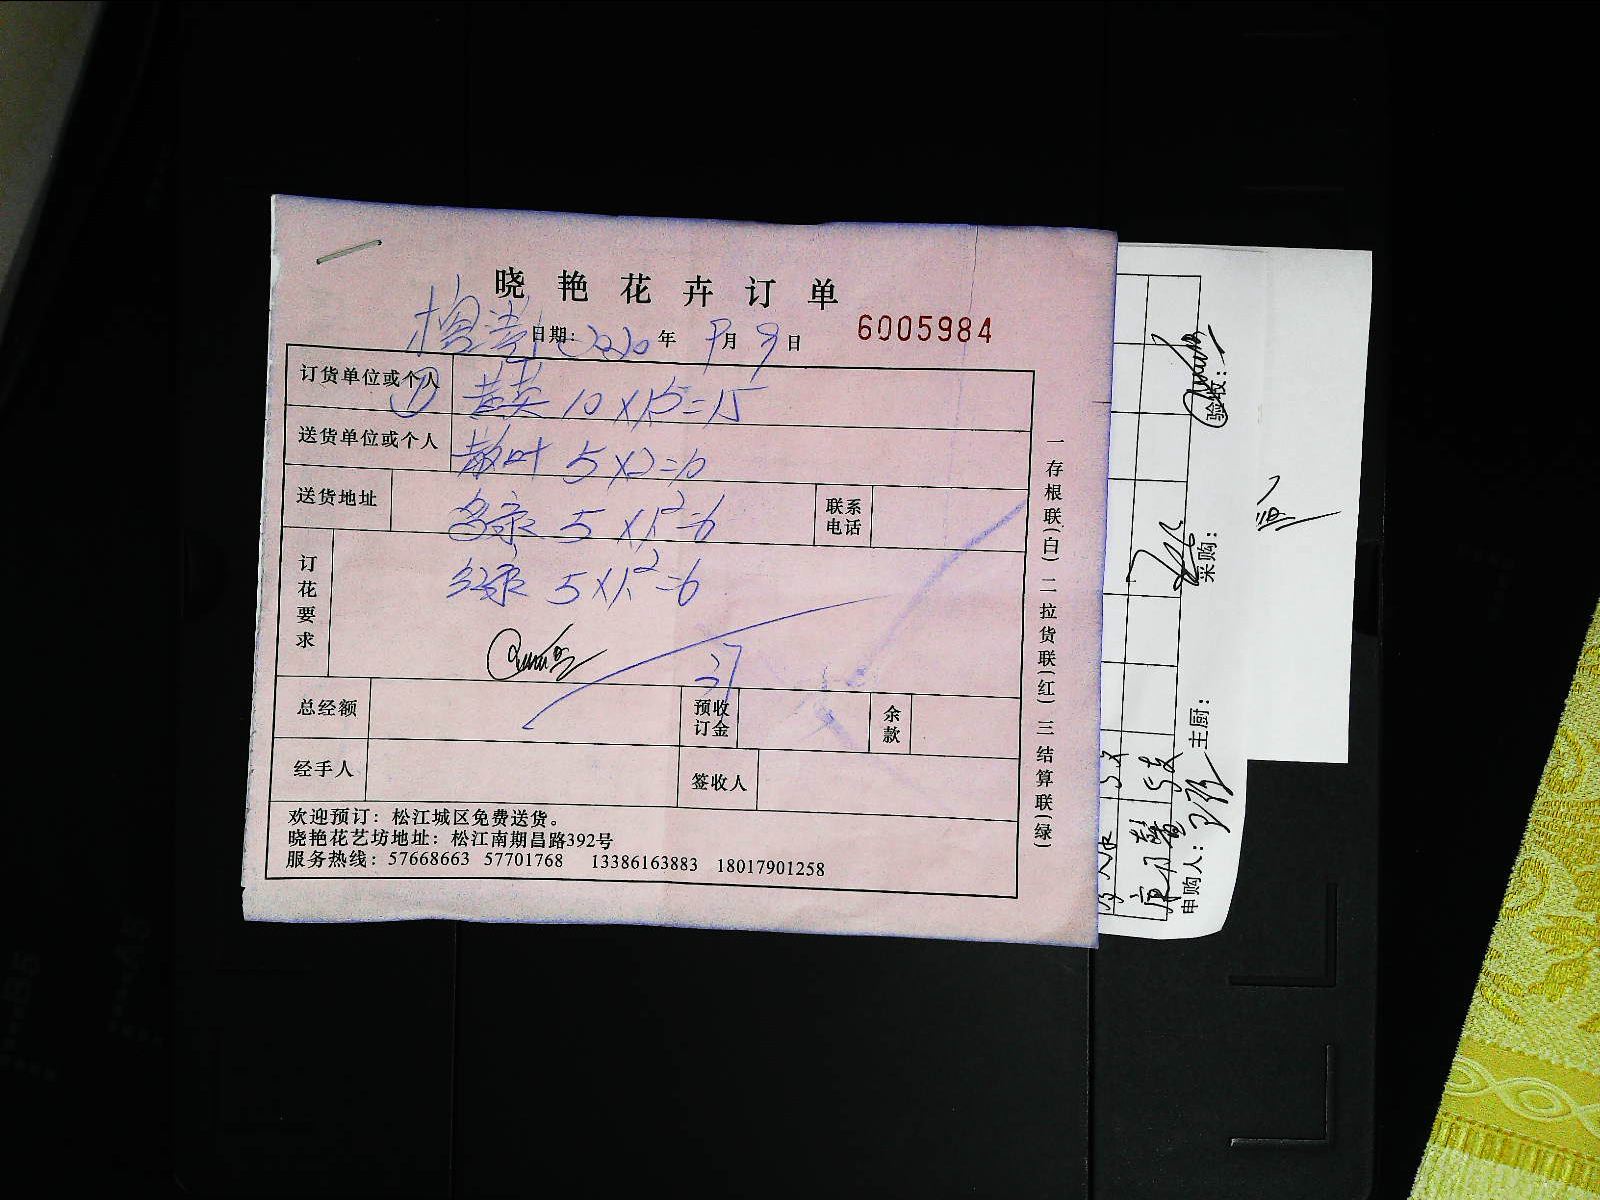 晓艳花卉订单
日期: 2020年 9月 9日 6005984
订货单位或个人 ① 黄英 10×1.5=15
送货单位或个人 散叶 5×2=10
送货地址 5×1.2=6 联系电话
订花要求 5×1.2=6
37
总经额 预收订金 余款
经手人 签收人
欢迎预订：松江城区免费送货。
晓艳花艺坊地址：松江南期昌路392号
服务热线：57668663 57701768 13386163883 18017901258
一存根联(白) 二拉货联(红) 三结算联(绿)
验收：
采购：
主厨：
申购人：